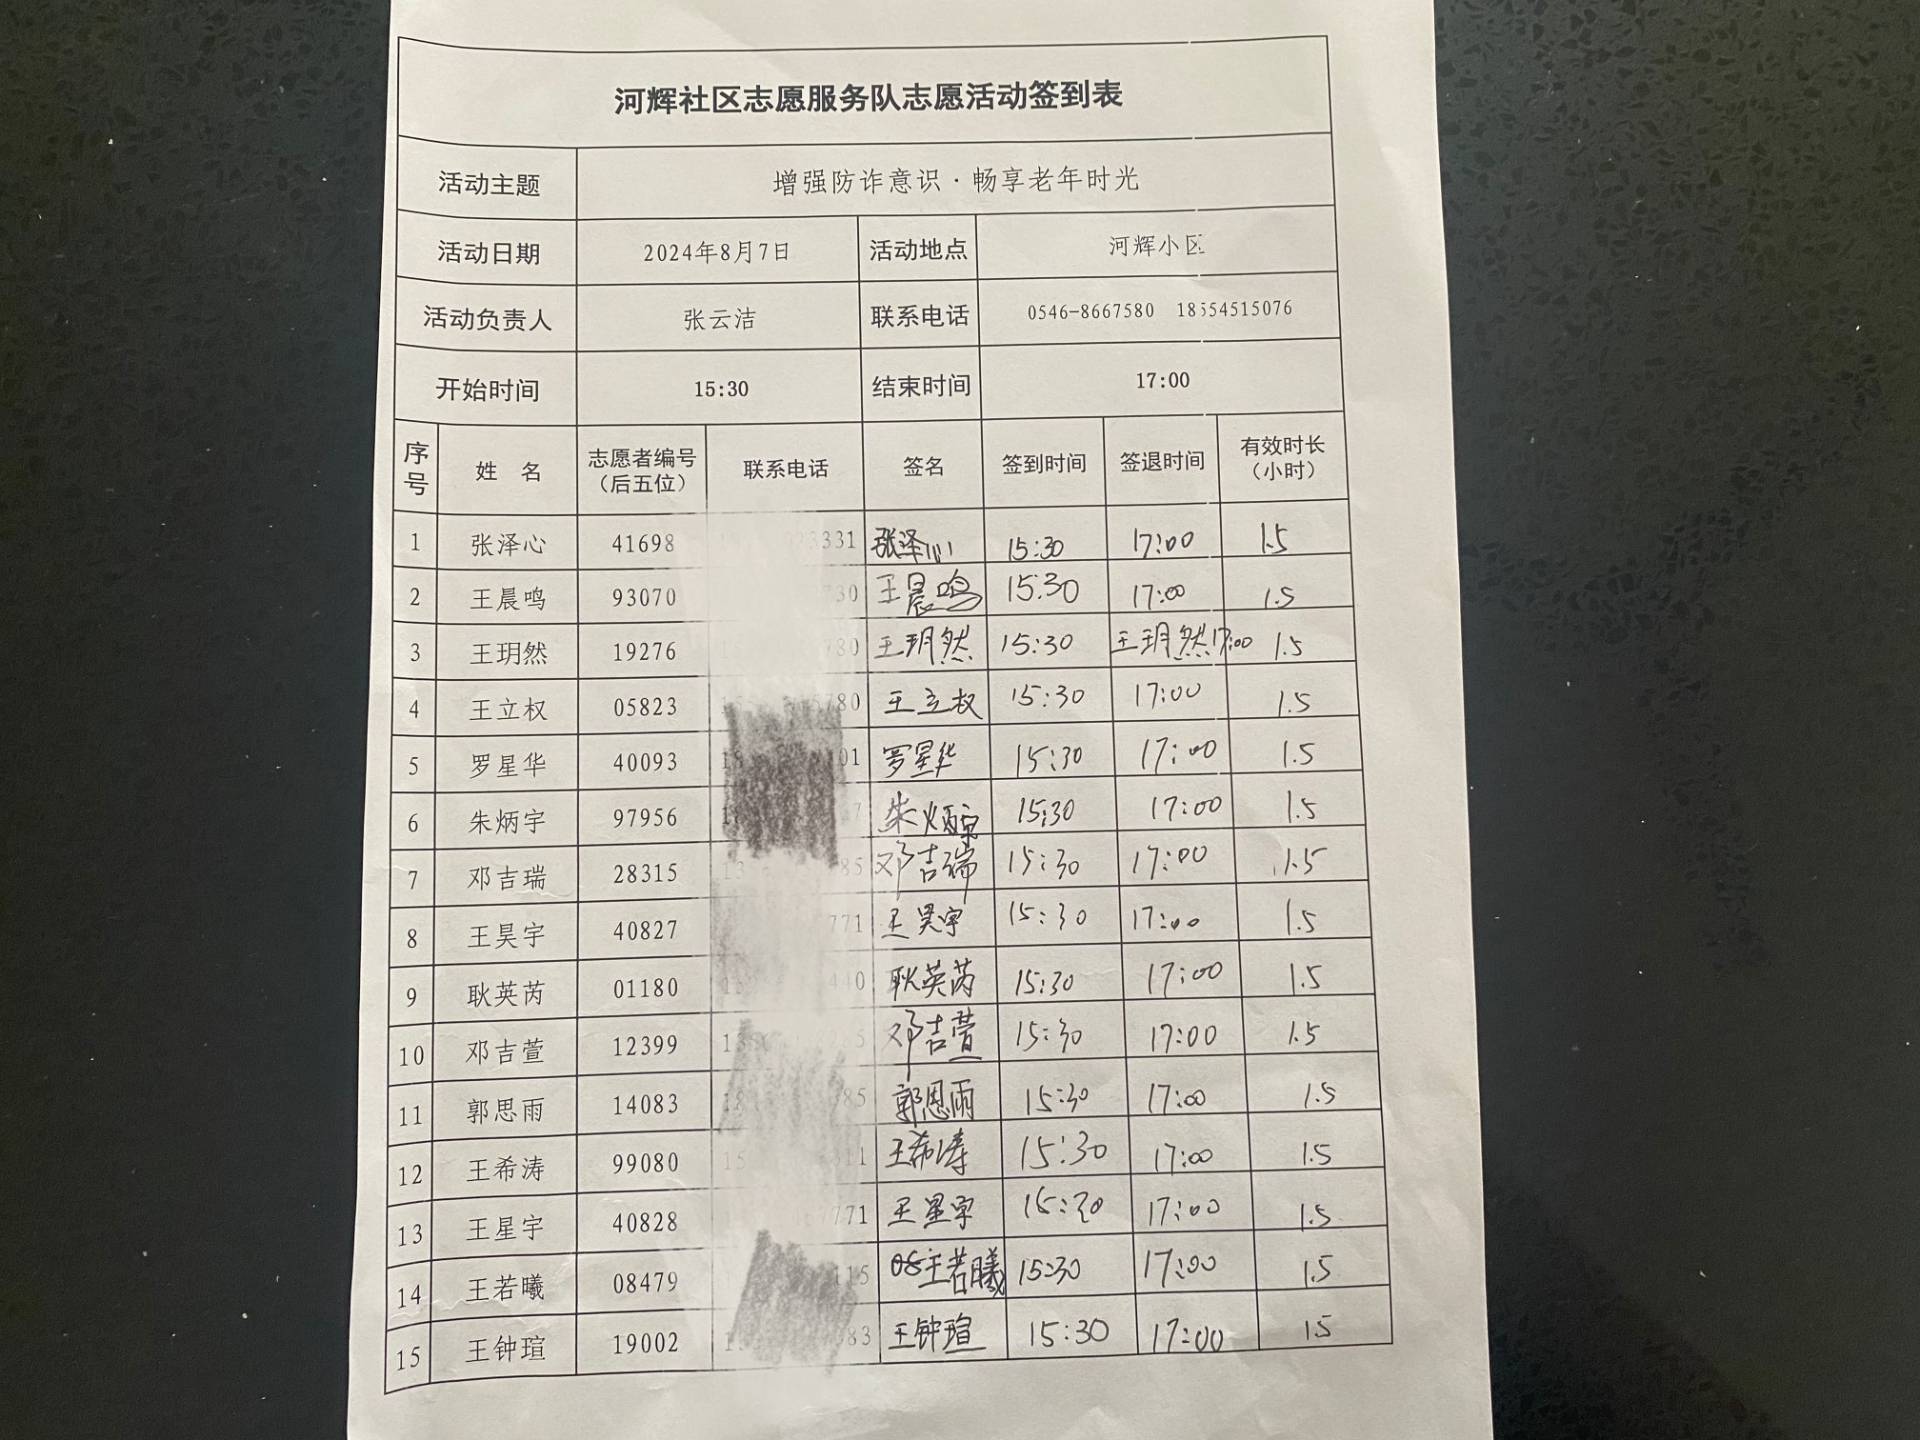 河辉社区志愿服务队志愿活动签到表
活动主题 增强防诈意识·畅享老年时光
活动日期 2024年8月7日 活动地点 河辉小区
活动负责人 张云洁 联系电话 0546-8667580 18554515076
开始时间 15:30 结束时间 17:00
序号 姓 名 志愿者编号（后五位） 联系电话 签名 签到时间 签退时间 有效时长（小时）
1 张泽心 41698 张泽心 15:30 17:00 1.5
2 王晨鸣 93070 王晨鸣 15:30 17:00 1.5
3 王玥然 19276 王玥然 15:30 王玥然17:00 1.5
4 王立权 05823 王立权 15:30 17:00 1.5
5 罗星华 40093 罗星华 15:30 17:00 1.5
6 朱炳宇 97956 朱炳宇 15:30 17:00 1.5
7 邓吉瑞 28315 邓吉瑞 15:30 17:00 1.5
8 王昊宇 40827 王昊宇 15:30 17:00 1.5
9 耿英芮 01180 耿英芮 15:30 17:00 1.5
10 邓吉萱 12399 邓吉萱 15:30 17:00 1.5
11 郭思雨 14083 郭思雨 15:30 17:00 1.5
12 王希涛 99080 王希涛 15:30 17:00 1.5
13 王星宇 40828 王星宇 15:30 17:00 1.5
14 王若曦 08479 王若曦 15:30 17:00 1.5
15 王钟瑄 19002 王钟瑄 15:30 17:00 1.5